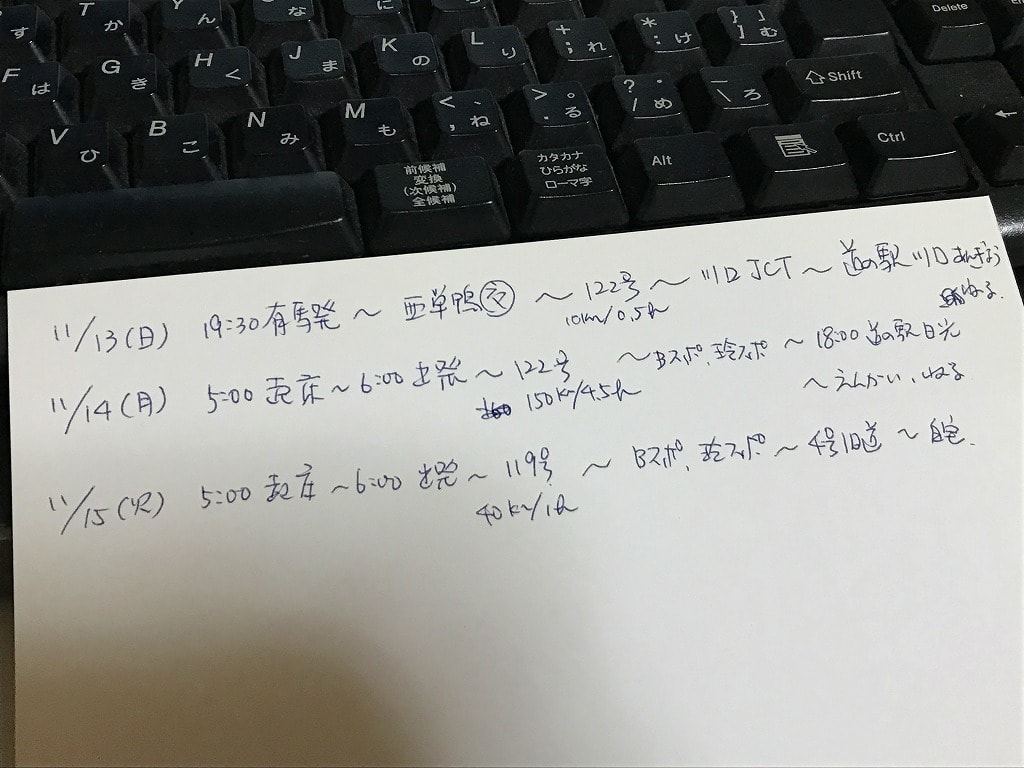 す T か Y ん な に Delete
F は G き H く J ま K の L り + ; れ * : け } 」 ] む
V ひ B こ N み M も < 、 , ね > 。 . る ? ・ / め _ \ ろ ⇧Shift
前候補
変換
(次候補)
全候補
カタカナ
ひらがな
ローマ字
Alt Ctrl ←
11/13(日) 19:30有馬発 〜 西巣鴨 〜 122号 〜 川口JCT 〜 道の駅川口あんぎょう
10km/0.5h ねる.
11/14(月) 5:00 起床〜6:00 出発 〜 122号 〜Bスポ、玲スポ 〜 18:00 道の駅日光
150km/4.5h 〜えんかい、ねる
11/15(火) 5:00 起床 〜6:00 出発 〜 119号 〜 Bスポ、玲スポ 〜 4号旧道 〜 自宅.
40km/1h